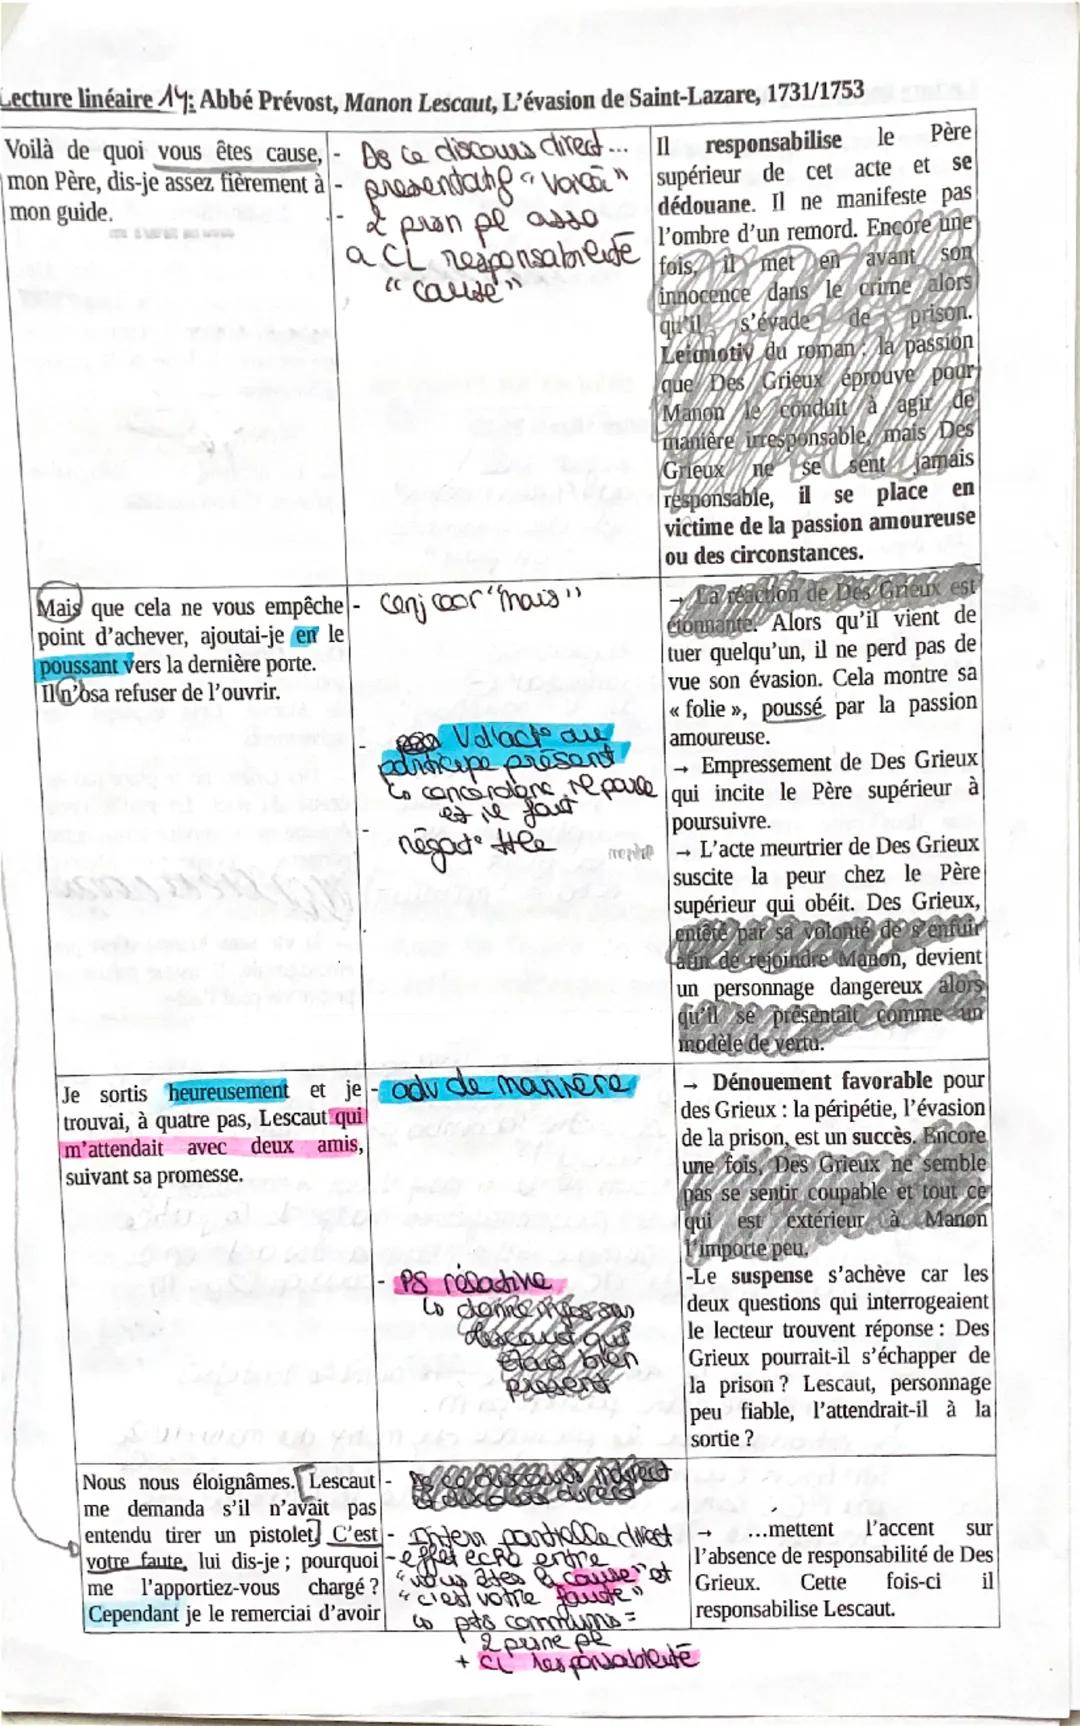 Lecture linéaire 14: Abbé Prévost, Manon Lescaut, L'évasion de Saint-Lazare, 1731/1753
Voilà de quoi vous êtes cause,
mon Père, dis-je assez fièrement à
mon guide.
- Ds ce discours direct...
- présentatif "voilà"
- 2 pron pe asso
a CL responsabilité
"cause"
Il responsabilise le Père
supérieur de cet acte et se
dédouane. Il ne manifeste pas
l'ombre d'un remord. Encore une
fois, il met en avant son
innocence dans le crime alors
qu'il s'évade de prison.
Leitmotiv du roman : la passion
que Des Grieux éprouve pour
Manon le conduit à agir de
manière irresponsable, mais Des
Grieux ne se sent jamais
responsable, il se place en
victime de la passion amoureuse
ou des circonstances.
Mais que cela ne vous empêche
point d'achever, ajoutai-je en le
poussant vers la dernière porte.
Il n'osa refuser de l'ouvrir.
- Conj coor "mais"
- Vd'act° au
participe présent
↳ concordance parole
et le fait
- négat° tle
→ La réaction de Des Grieux est
étonnante. Alors qu'il vient de
tuer quelqu'un, il ne perd pas de
vue son évasion. Cela montre sa
« folie », poussé par la passion
amoureuse.
→ Empressement de Des Grieux
qui incite le Père supérieur à
poursuivre.
→ L'acte meurtrier de Des Grieux
suscite la peur chez le Père
supérieur qui obéit. Des Grieux,
entêté par sa volonté de s'enfuir
afin de rejoindre Manon, devient
un personnage dangereux alors
qu'il se présentait comme un
modèle de vertu.
Je sortis heureusement et je
trouvai, à quatre pas, Lescaut qui
m'attendait avec deux amis,
suivant sa promesse.
- adv de manière
- PS relative
↳ donne infos sur
Lescaut qui
était bien
présent
→ Dénouement favorable pour
des Grieux : la péripétie, l'évasion
de la prison, est un succès. Encore
une fois, Des Grieux ne semble
pas se sentir coupable et tout ce
qui est extérieur à Manon
l'importe peu.
-Le suspense s'achève car les
deux questions qui interrogeaient
le lecteur trouvent réponse : Des
Grieux pourrait-il s'échapper de
la prison ? Lescaut, personnage
peu fiable, l'attendrait-il à la
sortie ?
Nous nous éloignâmes. [Lescaut
me demanda s'il n'avait pas
entendu tirer un pistolet.] C'est
votre faute, lui dis-je ; pourquoi
me l'apportiez-vous chargé ?
Cependant je le remerciai d'avoir
- discours indirect
et discours direct
- Interro partielle direct
- effet écho entre
"vous êtes la cause" et
"c'est votre faute"
↳ pts communs =
2 prone pe
+ CL responsabilité
→ ...mettent l'accent sur
l'absence de responsabilité de Des
Grieux. Cette fois-ci il
responsabilise Lescaut.